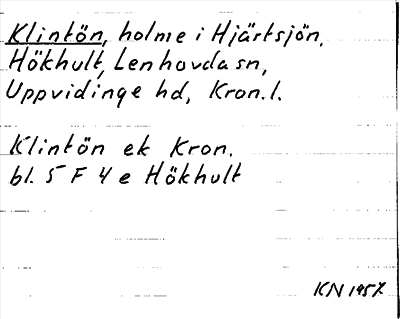 Klintön, holme i Hjärtsjön,
Hökhult, Lenhovda sn,
Uppvidinge hd, Kron. l.
Klintön ek Kron.
bl. 5 F 4 e Hökhult
KN 1957